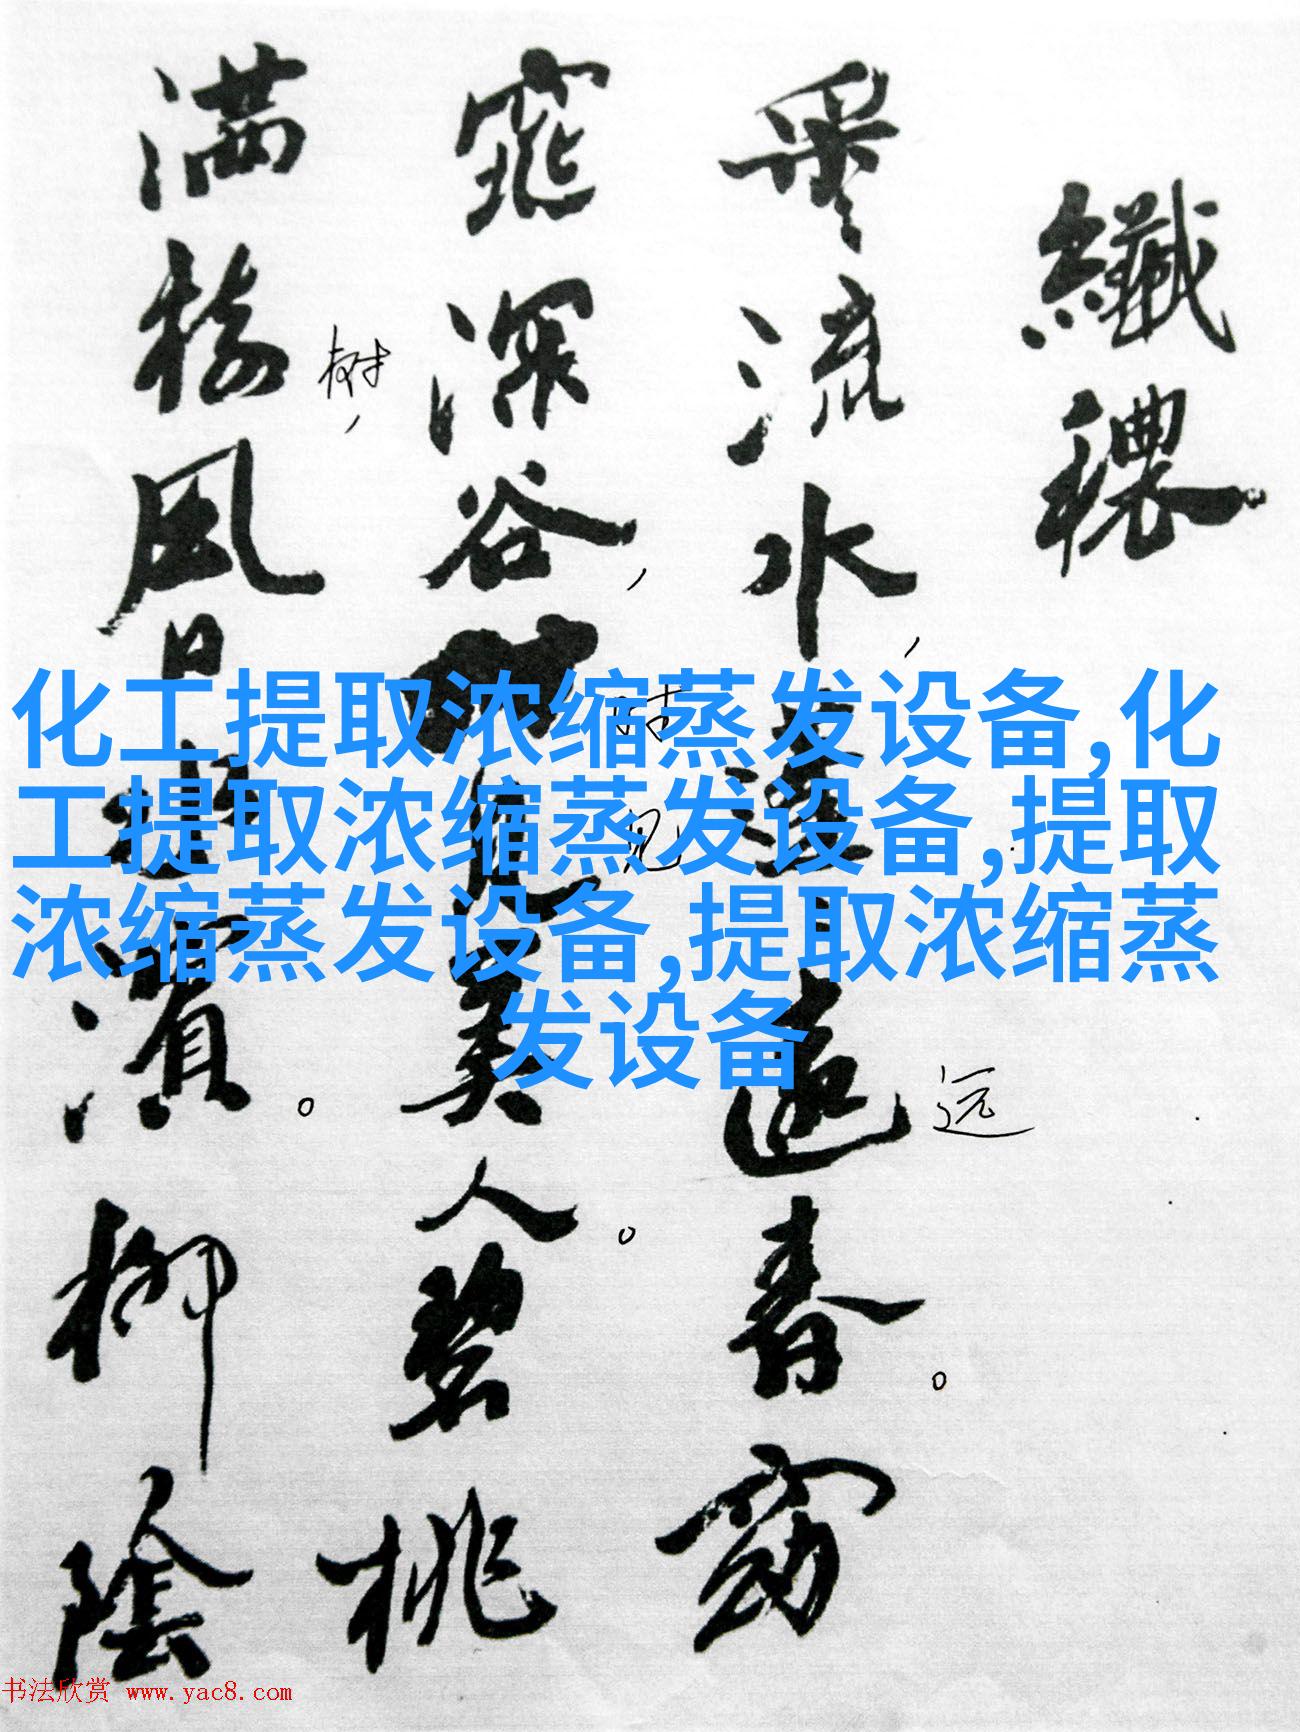 纖穠
采〻流水，蓬〻遠春。窈
远
窕深谷，時見美人。碧桃
时见
满樹，風日水濱。柳陰
树
化工提取浓缩蒸发设备,化
工提取浓缩蒸发设备,提取
浓缩蒸发设备,提取浓缩蒸
发设备
书法欣赏 www.yac8.com